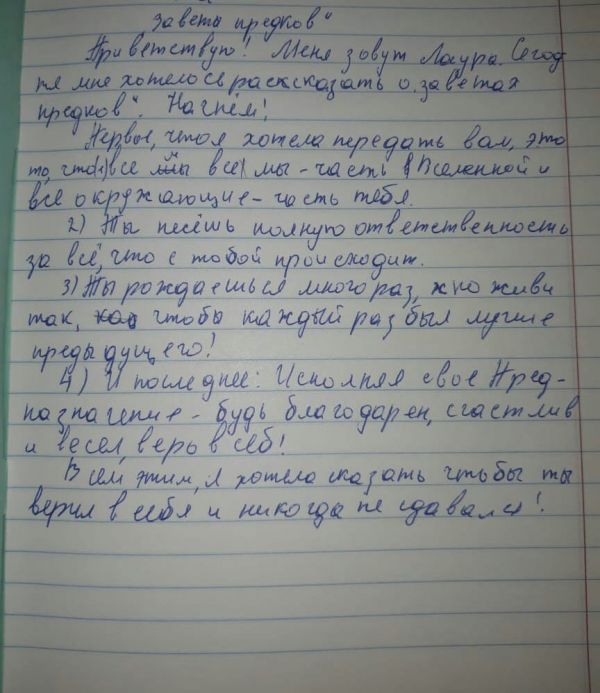 Заветы предков"
Приветствую! Меня зовут Лаура. Сегод
ня мне хотелось рассказать о „заветах
предков". Начнём!
Первое, что я хотела передать вам, это
то, что 1) все мы все) мы - часть Вселенной и
все окружающие - часть тебя.
2) Ты несёшь полную ответственность
за всё, что с тобой происходит.
3) Ты рождаешься много раз, но живи
так, чтобы каждый раз был лучше
предыдущего!
4) И последнее: Исполняя свое Пред-
назначение - будь благодарен, счастлив
и весел, верь в себ!
Всем этим, я хотела сказать чтобы ты
верил в себя и никогда не сдавался!